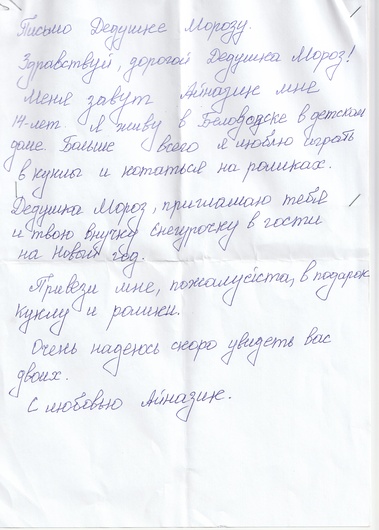 Письмо Дедушке Морозу.
Здравствуй, дорогой Дедушка Мороз!
Меня завут Айназик мне
14-лет. Я живу в Беловодске в детском
доме. Больше всего я люблю играть
в куклы и кататься на роликах.
Дедушка Мороз, приглашаю тебя
и твою внучку Снегурочку в гости
на Новый год.
Привези мне, пожалуйста, в подарок
куклу и ролики.
Очень надеюсь скоро увидеть вас
двоих.
С любовью Айназик.